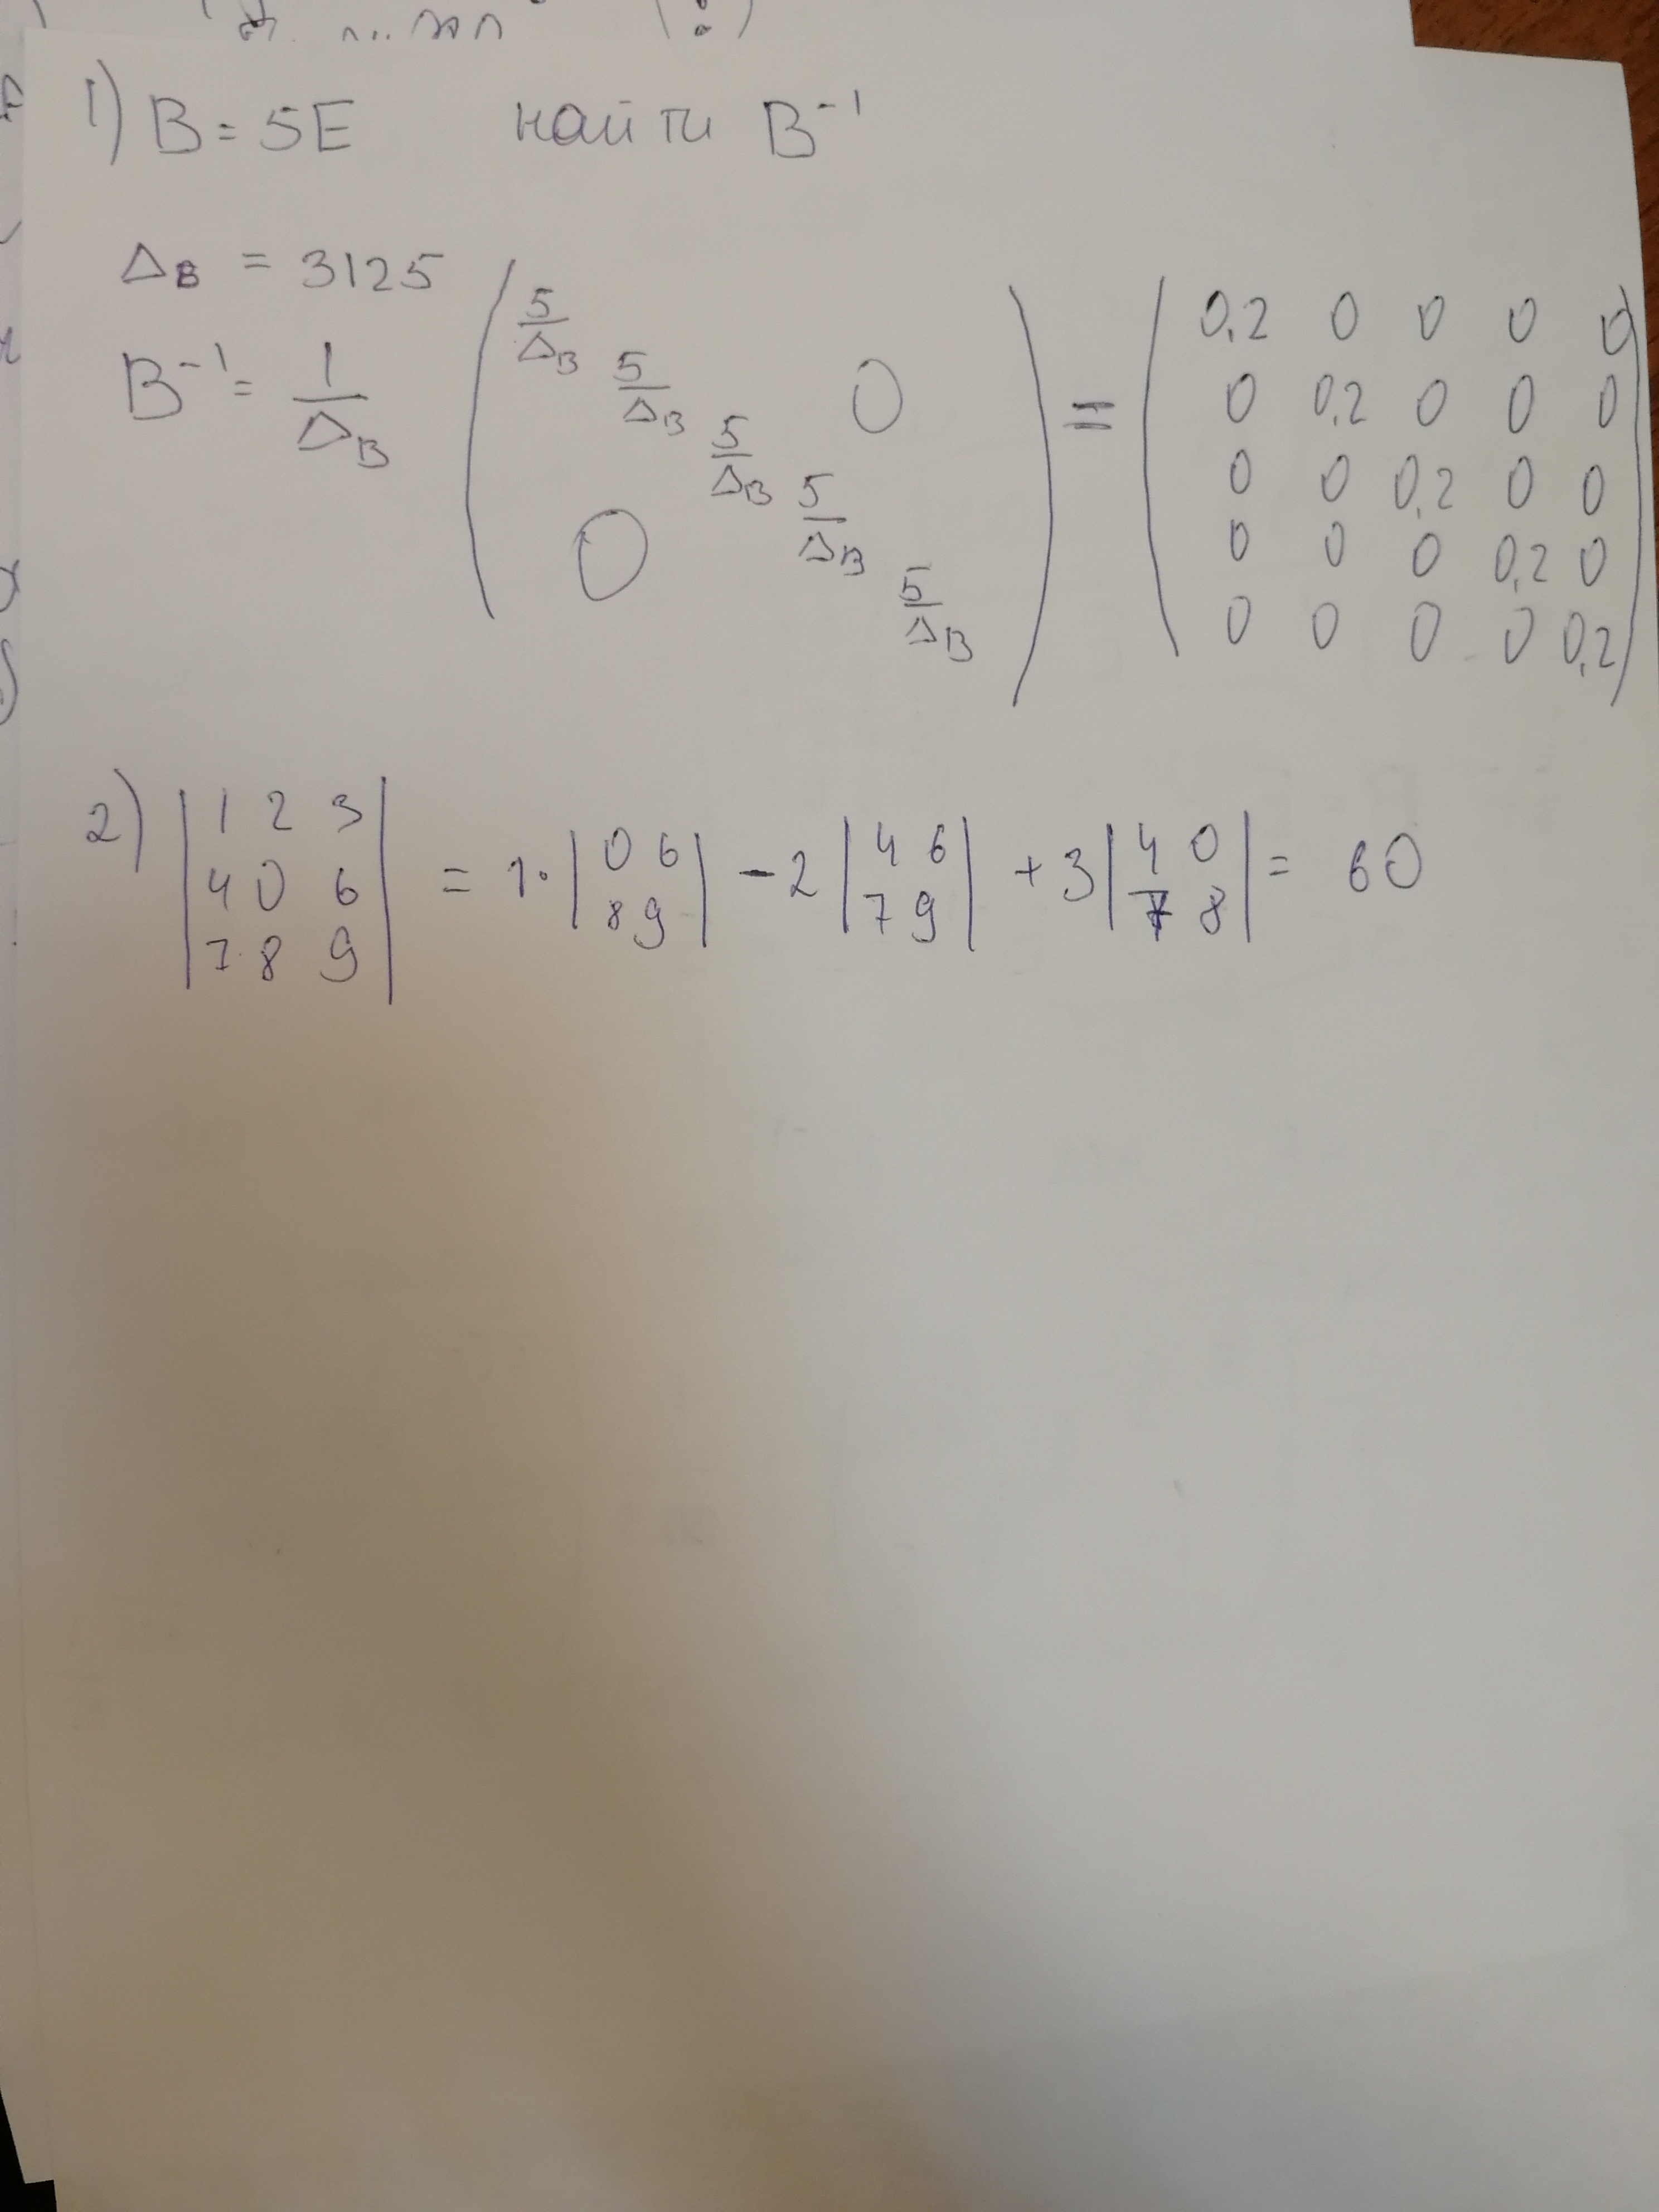 1) B = 5E найти B⁻¹
Δ_B = 3125
B⁻¹ = 1/Δ_B ( 5/Δ_B 5/Δ_B 5/Δ_B 5/Δ_B 5/Δ_B 0 0 ) = ( 0,2 0 0 0 0
0 0,2 0 0 0
0 0 0,2 0 0
0 0 0 0,2 0
0 0 0 0 0,2 )
2) |1 2 3
4 0 6
7 8 9| = 1· |0 6
8 9| - 2 |4 6
7 9| + 3 |4 0
7 8| = 60